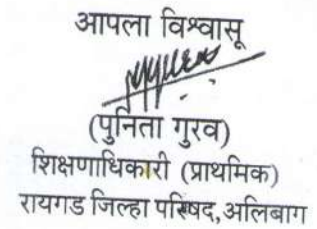 आपला विश्वासू
(पुनिता गुरव)
शिक्षणाधिकारी (प्राथमिक)
रायगड जिल्हा परिषद,अलिबाग